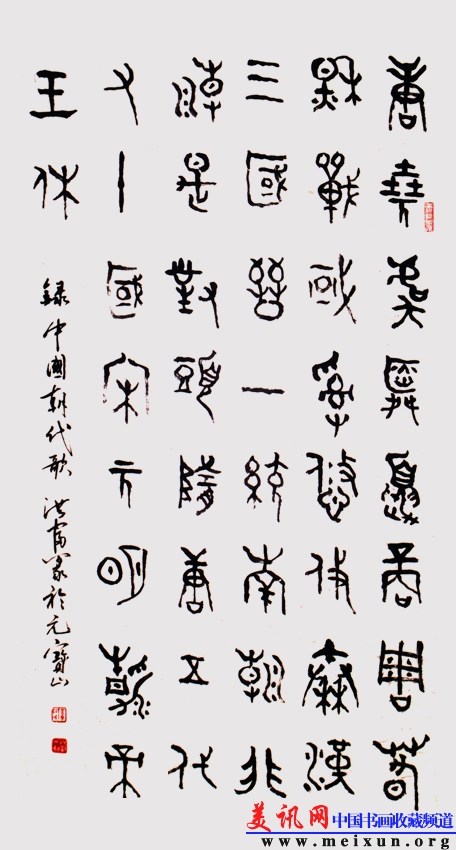 唐堯虞舜夏商周春
秋戰或亂悠攸秦漢
三國晉一統南朝北
朝是對頭隋唐五代
又十國宋元明清帝
王休
錄中國朝代歌 洪富於元寶山
美讯网 中国书画收藏频道
www.meixun.org